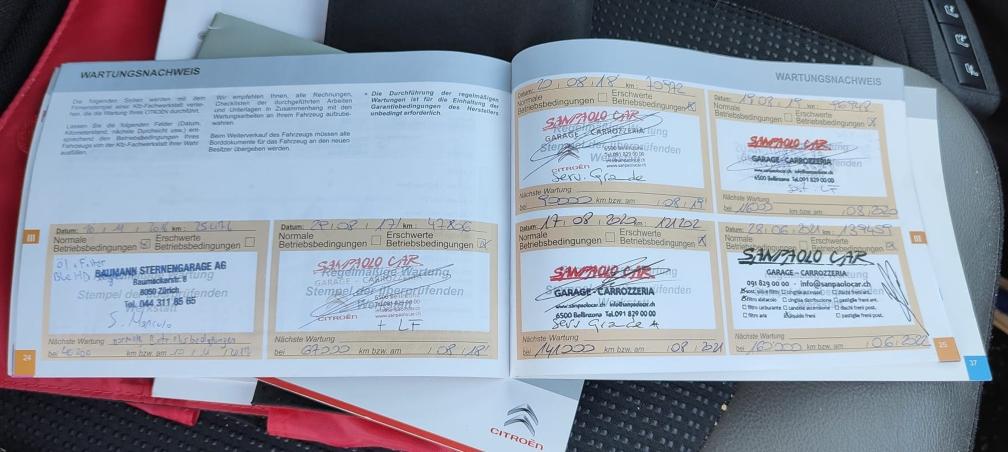 WARTUNGSNACHWEIS
Die folgenden Seiten werden mit dem
Firmenstempel einer Kfz-Fachwerkstatt verse-
hen, die die Wartung Ihres CITROËN durchführt.
Lassen Sie die folgenden Felder (Datum,
Kilometerstand, nächste Durchsicht usw.) ent-
sprechend den Betriebsbedingungen Ihres
Fahrzeugs von der Kfz-Fachwerkstatt Ihrer Wahl
ausfüllen.
Wir empfehlen Ihnen, alle Rechnungen,
Checklisten der durchgeführten Arbeiten
und Unterlagen in Zusammenhang mit den
Wartungsarbeiten an Ihrem Fahrzeug aufzube-
wahren.
Beim Weiterverkauf des Fahrzeugs müssen alle
Borddokumente für das Fahrzeug an den neuen
Besitzer übergeben werden.
• Die Durchführung der regelmäßigen
Wartungen ist für die Einhaltung der
Garantiebedingungen des Herstellers
unbedingt erforderlich.
III
Datum: km:
Normale Erschwerte
Betriebsbedingungen Betriebsbedingungen
Öl + Filter
BAUMANN STERNENGARAGE AG
Baumackerstr.
8050 Zürich
Tel. 044 311 85 65
Nächste Wartung normale Betriebsbedingungen
bei km bzw. am
24
Datum: 29.08.17 km: 47806
Normale Erschwerte
Betriebsbedingungen Betriebsbedingungen X
SANPAOLO CAR
Regelmäßige Wartung
GARAGE - CARROZZERIA
Stempel der überprüfenden
CITROËN
www.sanpaolocar.ch
+ LF
Nächste Wartung
bei 67000 km bzw. am 08.18
WARTUNGSNACHWEIS
Datum: 20.08.18 km: 70972
Normale Erschwerte
Betriebsbedingungen Betriebsbedingungen X
SANPAOLO CAR
GARAGE - CARROZZERIA
6500 Bellinzona
Tel.091 829 00 00
CITROËN
Serv. Grande
Nächste Wartung
bei 90000 km bzw. am 08.19
Datum: 19.08.19 km:
Normale Erschwerte
Betriebsbedingungen Betriebsbedingungen X
SANPAOLO CAR
GARAGE-CARROZZERIA
www.sanpaolocar.ch info@sanpaolocar.ch
6500 Bellinzona Tel.091 829 00 00
LF
Nächste Wartung
bei km bzw. am 08.2020
Datum: 17.08.2020 km: 121202
Normale Erschwerte
Betriebsbedingungen Betriebsbedingungen X
SANPAOLO CAR
GARAGE-CARROZZERIA
www.sanpaolocar.ch info@sanpaolocar.ch
6500 Bellinzona Tel.091 829 00 00
Serv Grande
Nächste Wartung
bei 141000 km bzw. am 08.2021
Datum: 28.06.2021 km: 139459
Normale Erschwerte
Betriebsbedingungen Betriebsbedingungen X
SANPAOLO CAR
GARAGE - CARROZZERIA
091 829 00 00 - info@sanpaolocar.ch
Nächste Wartung
bei 160000 km bzw. am 06.2022
III
25
37
CITROËN